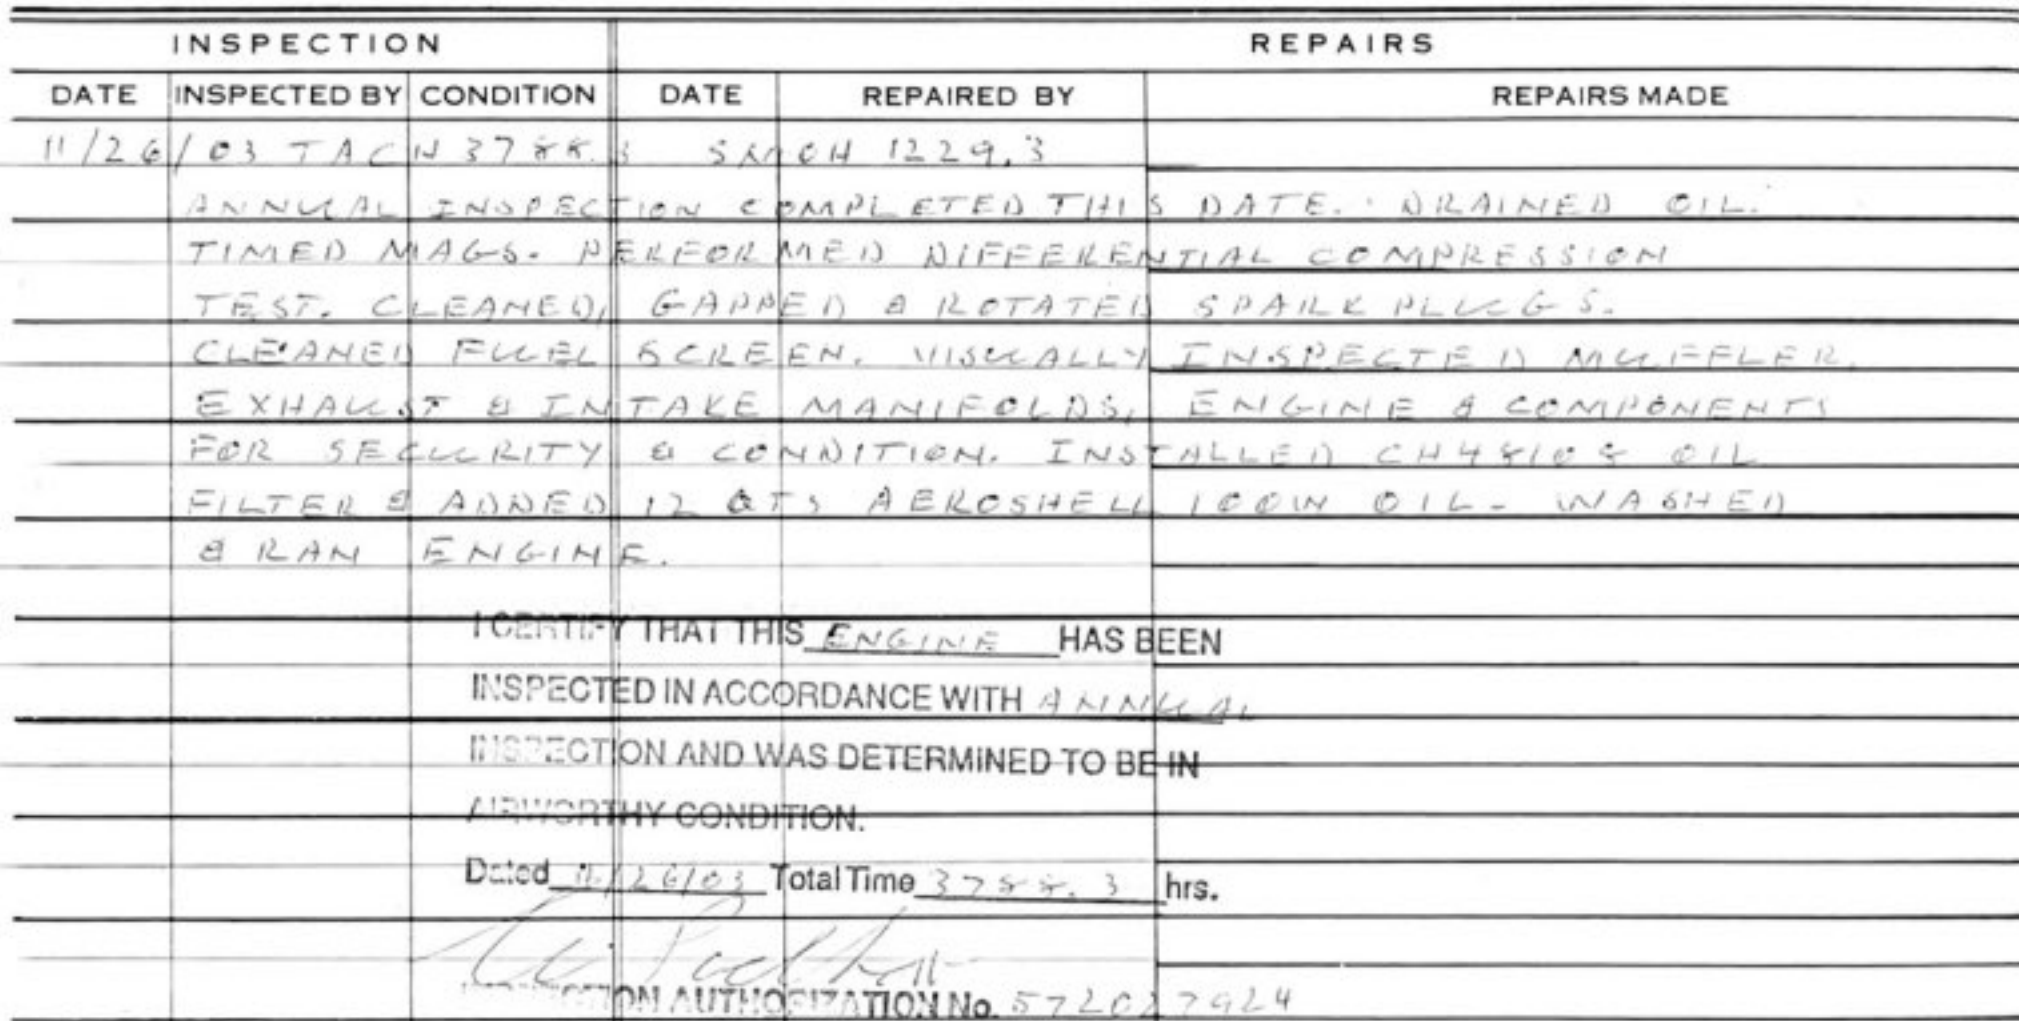 INSPECTION REPAIRS
DATE INSPECTED BY CONDITION DATE REPAIRED BY REPAIRS MADE
11/26/03 TACH 3788.3 SMOH 1229.3
ANNUAL INSPECTION COMPLETED THIS DATE. DRAINED OIL.
TIMED MAGS. PERFORMED DIFFERENTIAL COMPRESSION
TEST. CLEANED, GAPPED & ROTATED SPARK PLUGS.
CLEANED FUEL SCREEN. VISUALLY INSPECTED MUFFLER,
EXHAUST & INTAKE MANIFOLDS, ENGINE & COMPONENTS
FOR SECURITY & CONDITION. INSTALLED CH48108 OIL
FILTER & ADDED 12 QTS AEROSHELL 100W OIL. WASHED
& RAN ENGINE.
I CERTIFY THAT THIS ENGINE HAS BEEN
INSPECTED IN ACCORDANCE WITH ANNUAL
INSPECTION AND WAS DETERMINED TO BE IN
AIRWORTHY CONDITION.
Dated 11/26/03 Total Time 3788.3 hrs.
INSPECTION AUTHORIZATION No. 572027924